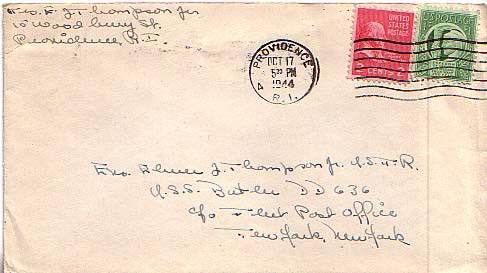 Mrs. E. J. Thompson Jr.
15 Woodbury St.
Providence, R.I.
PROVIDENCE
OCT 17
5 30 PM
1944
4 R.I.
UNITED STATES POSTAGE
2 CENTS 2
U.S. POSTAGE
Ens. Elmer J. Thompson Jr. U.S.N.R.
U.S.S. Butler DD 636
c/o Fleet Post Office
New York, New York